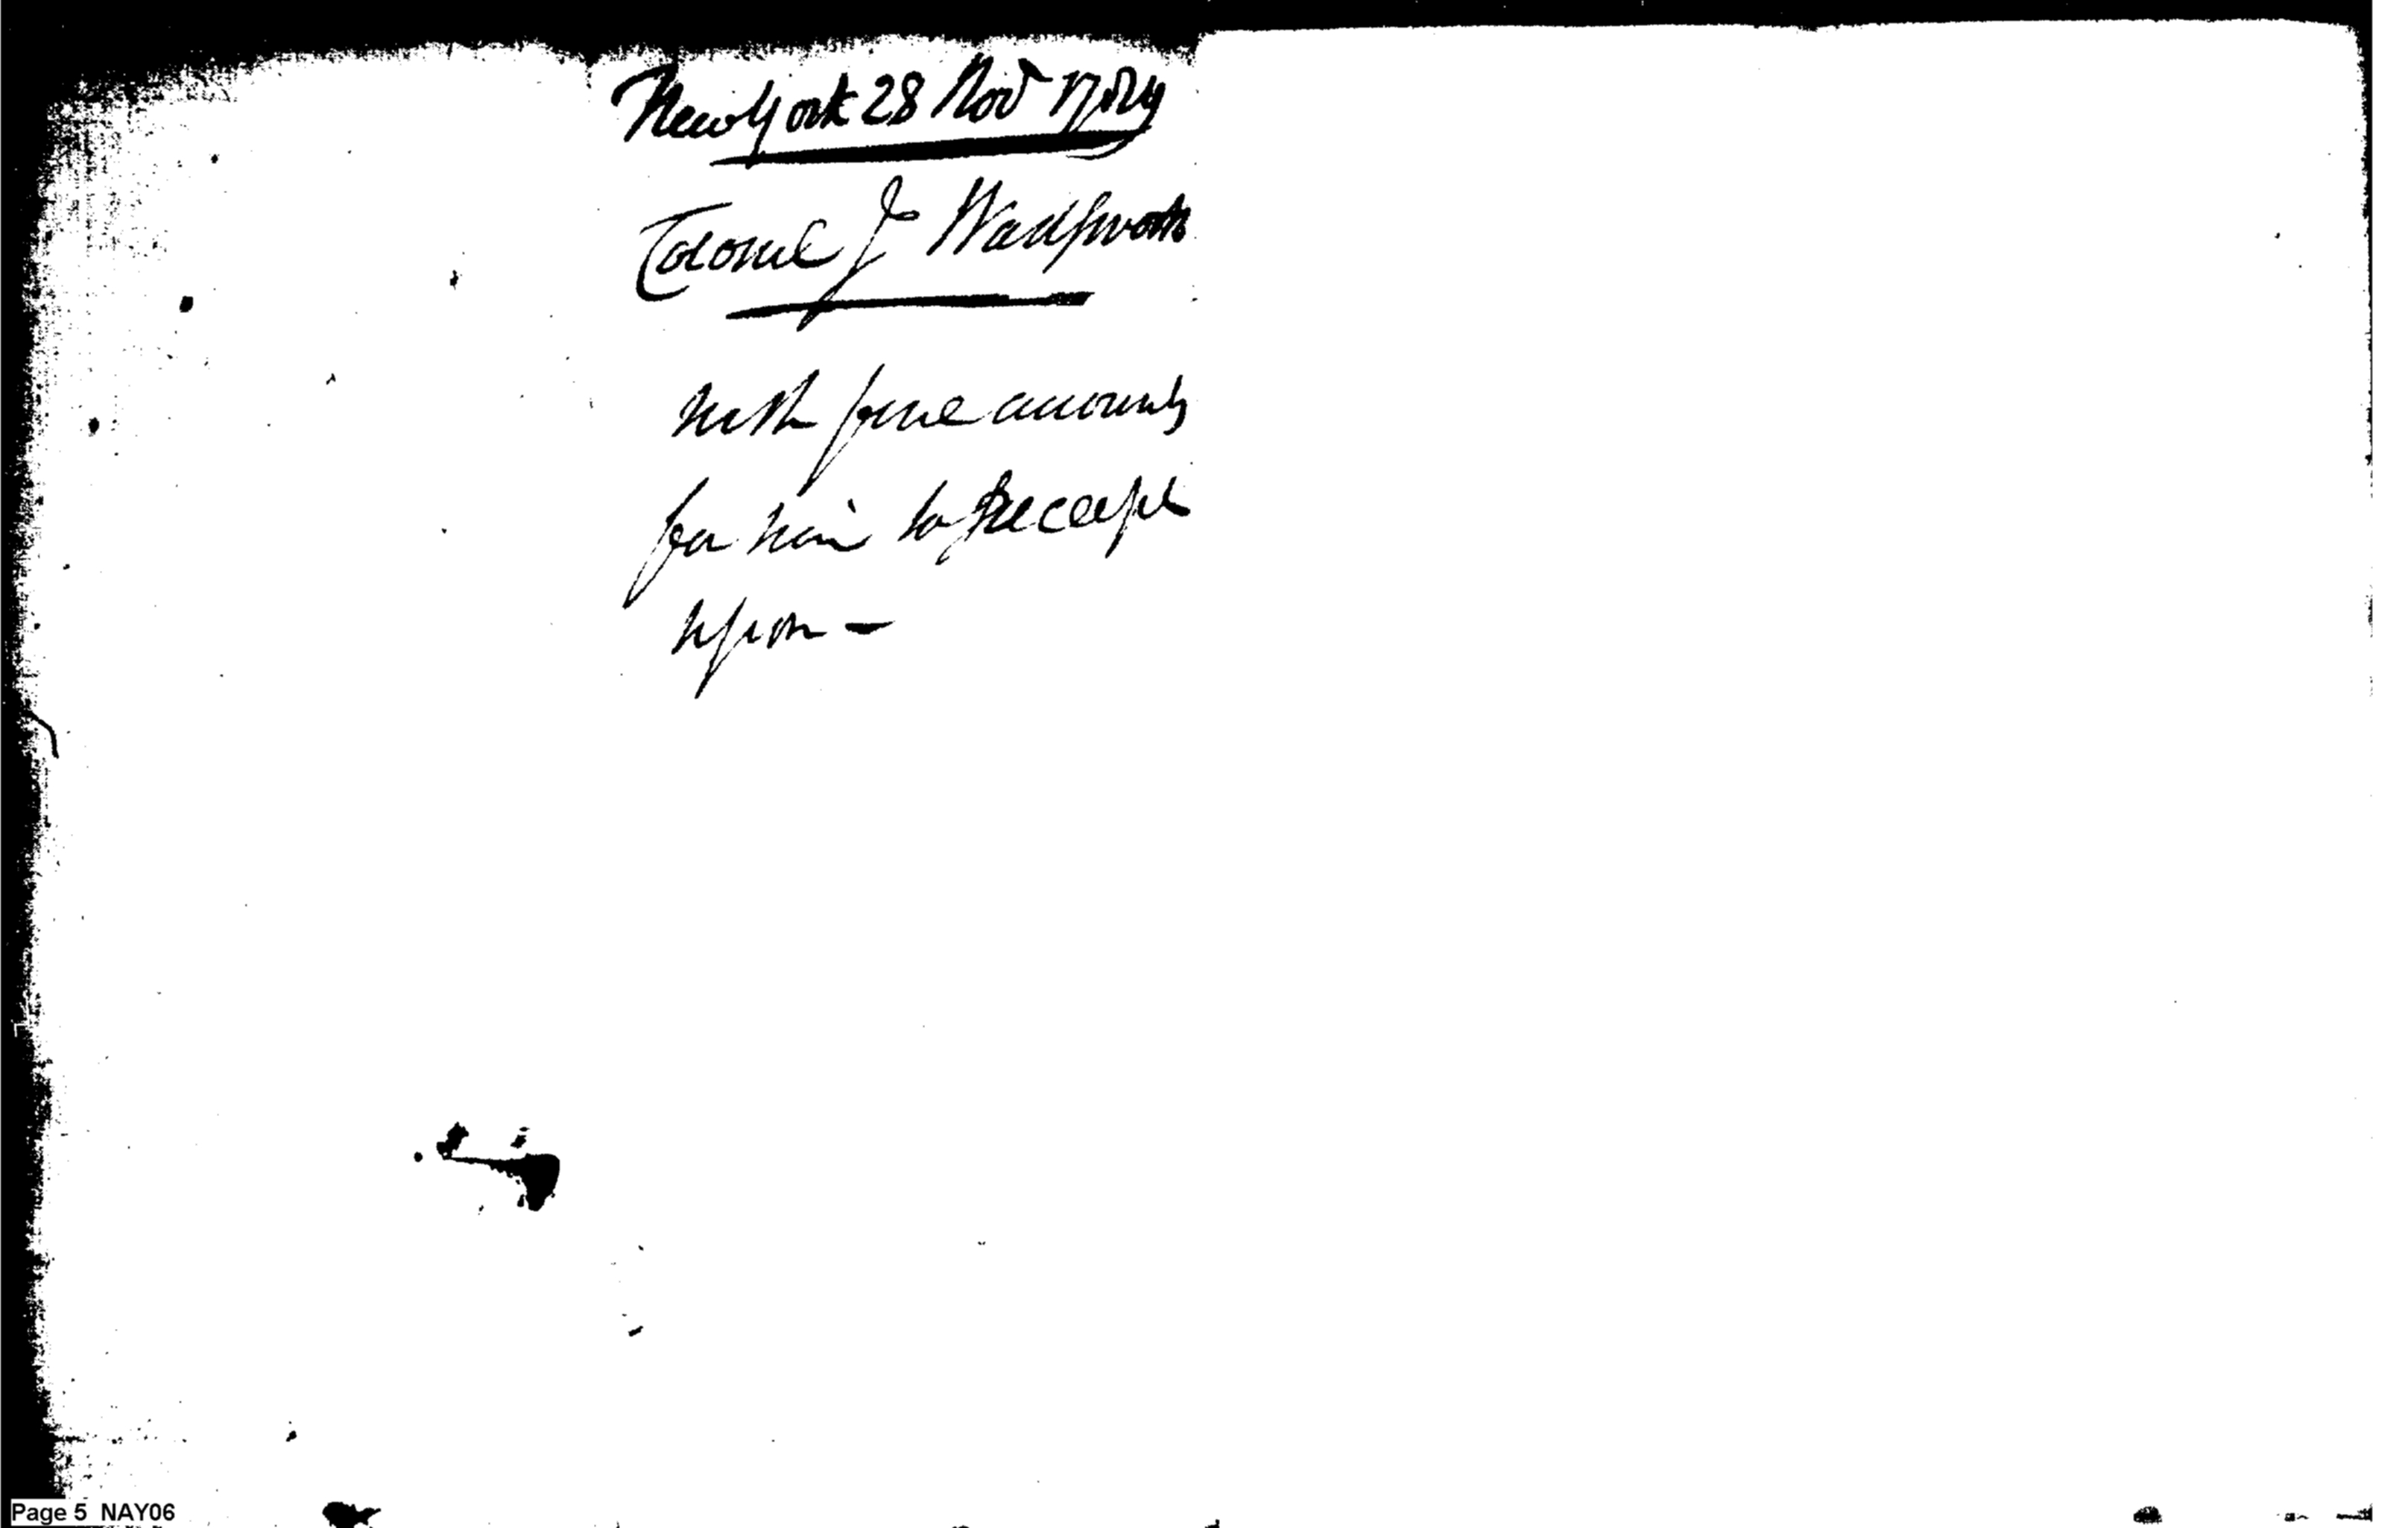 New York 28 Nov 1784
Colonel J Wadsworth
with some accounts
for him to receipt
upon —
Page 5 NAY06